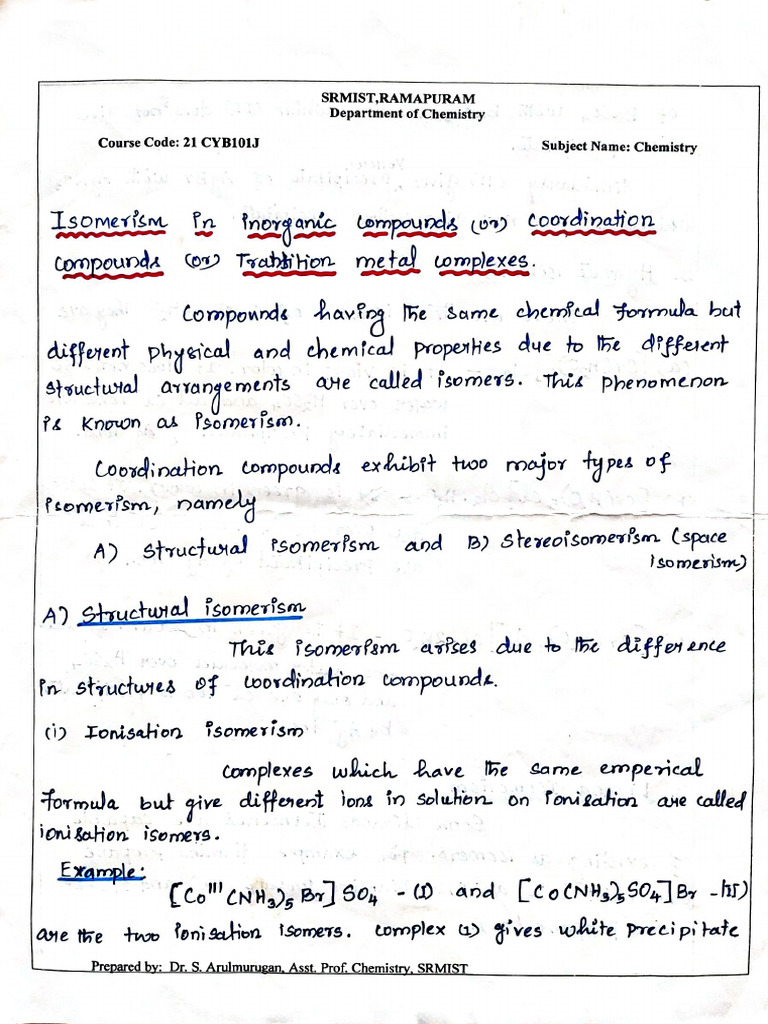 SRMIST,RAMAPURAM
Department of Chemistry
Course Code: 21 CYB101J Subject Name: Chemistry
Isomerism in inorganic compounds (or) coordination
compounds (or) Transition metal complexes.
Compounds having the same chemical formula but
different physical and chemical properties due to the different
structural arrangements are called isomers. This phenomenon
is known as isomerism.
Coordination compounds exhibit two major types of
isomerism, namely
A) Structural isomerism and B) Stereoisomerism (space
isomerism)
A) Structural isomerism
This isomerism arises due to the difference
in structures of coordination compounds.
(i) Ionisation isomerism
Complexes which have the same emperical
formula but give different ions in solution on ionisation are called
ionisation isomers.
Example:
[Co^III (NH3)5 Br] SO4 - (I) and [Co(NH3)5SO4] Br - (II)
are the two ionisation isomers. Complex (1) gives white precipitate
Prepared by: Dr. S. Arulmurugan, Asst. Prof. Chemistry, SRMIST